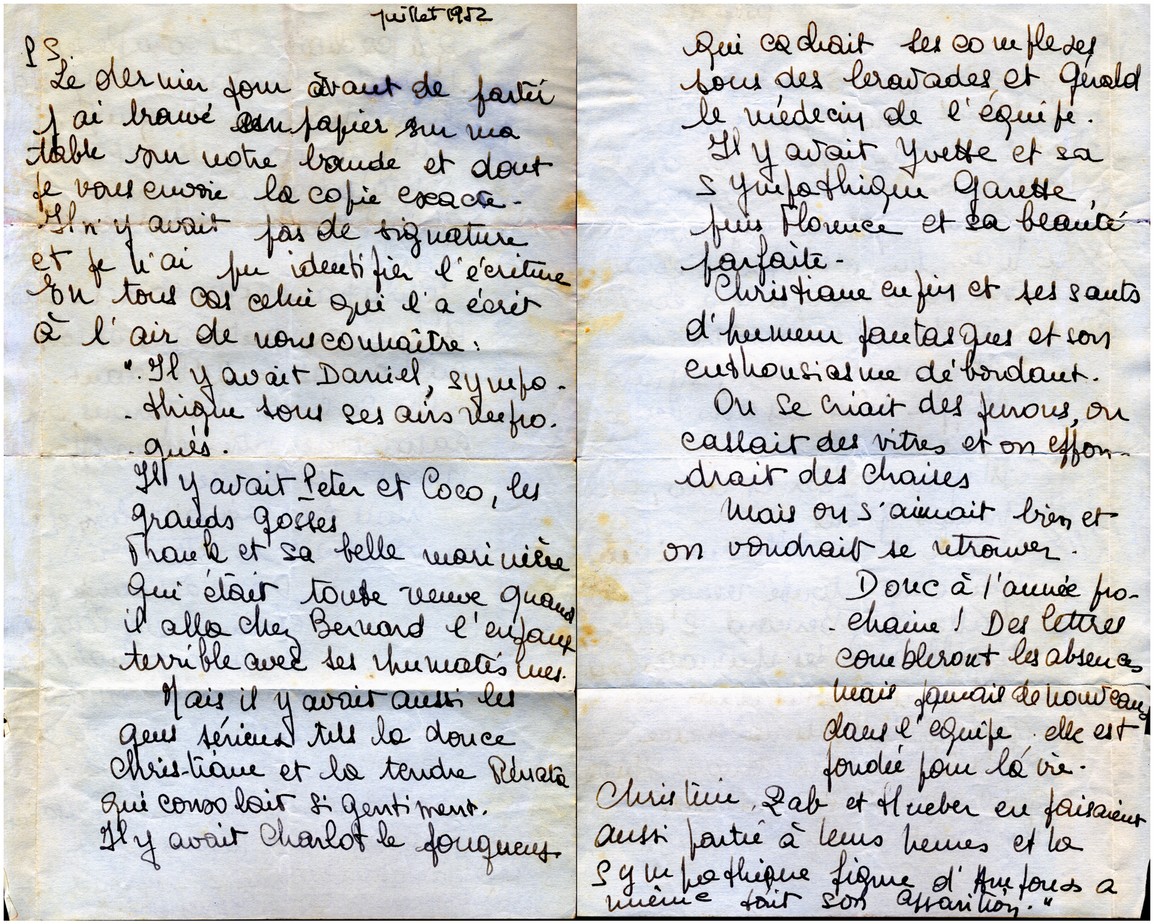 juillet 1952
P S.
Le dernier jour avant de partir
j'ai trouvé un papier sur ma
table sur notre bande et dont
je vous envoie la copie exacte -
Il n'y avait pas de signature
et je n'ai pu identifier l'écriture
En tous cas celui qui l'a écrit
à l'air de nous connaître :
". Il y avait Daniel, sympa-
thique sous ses airs renfro.
. gnés.
Il y avait Peter et Coco, les
grands gosses
Frank et sa belle marinière
qui était toute neuve quand
il alla chez Bernard l'enfant
terrible avec ses rhumatismes.
Mais il y avait aussi les
gens sérieux tels la douce
Christiane et la tendre Rénata
qui consolait si gentiment.
Il y avait Charlot le fougueux
qui cachait ses complexes
sous des bravades et Gérald
le médecin de l'équipe.
Il y avait Yvette et sa
sympathique
puis Florence et sa beauté
parfaite -
Christiane enfin et ses sauts
d'humeur fantasques et son
enthousiasme débordant.
On se criait des jurons, on
cassait des vitres et on effon-
drait des chaises
Mais on s'aimait bien et
on voudrait se retrouver.
Donc à l'année pro-
. chaine ! Des lettres
combleront les absences
mais jamais de nouveaux
dans l'équipe. elle est
fondée pour la vie.
Christine, Zab et Hueber en faisaient
aussi partie à leurs heures et la
sympathique figure d' a
même fait son apparition. "